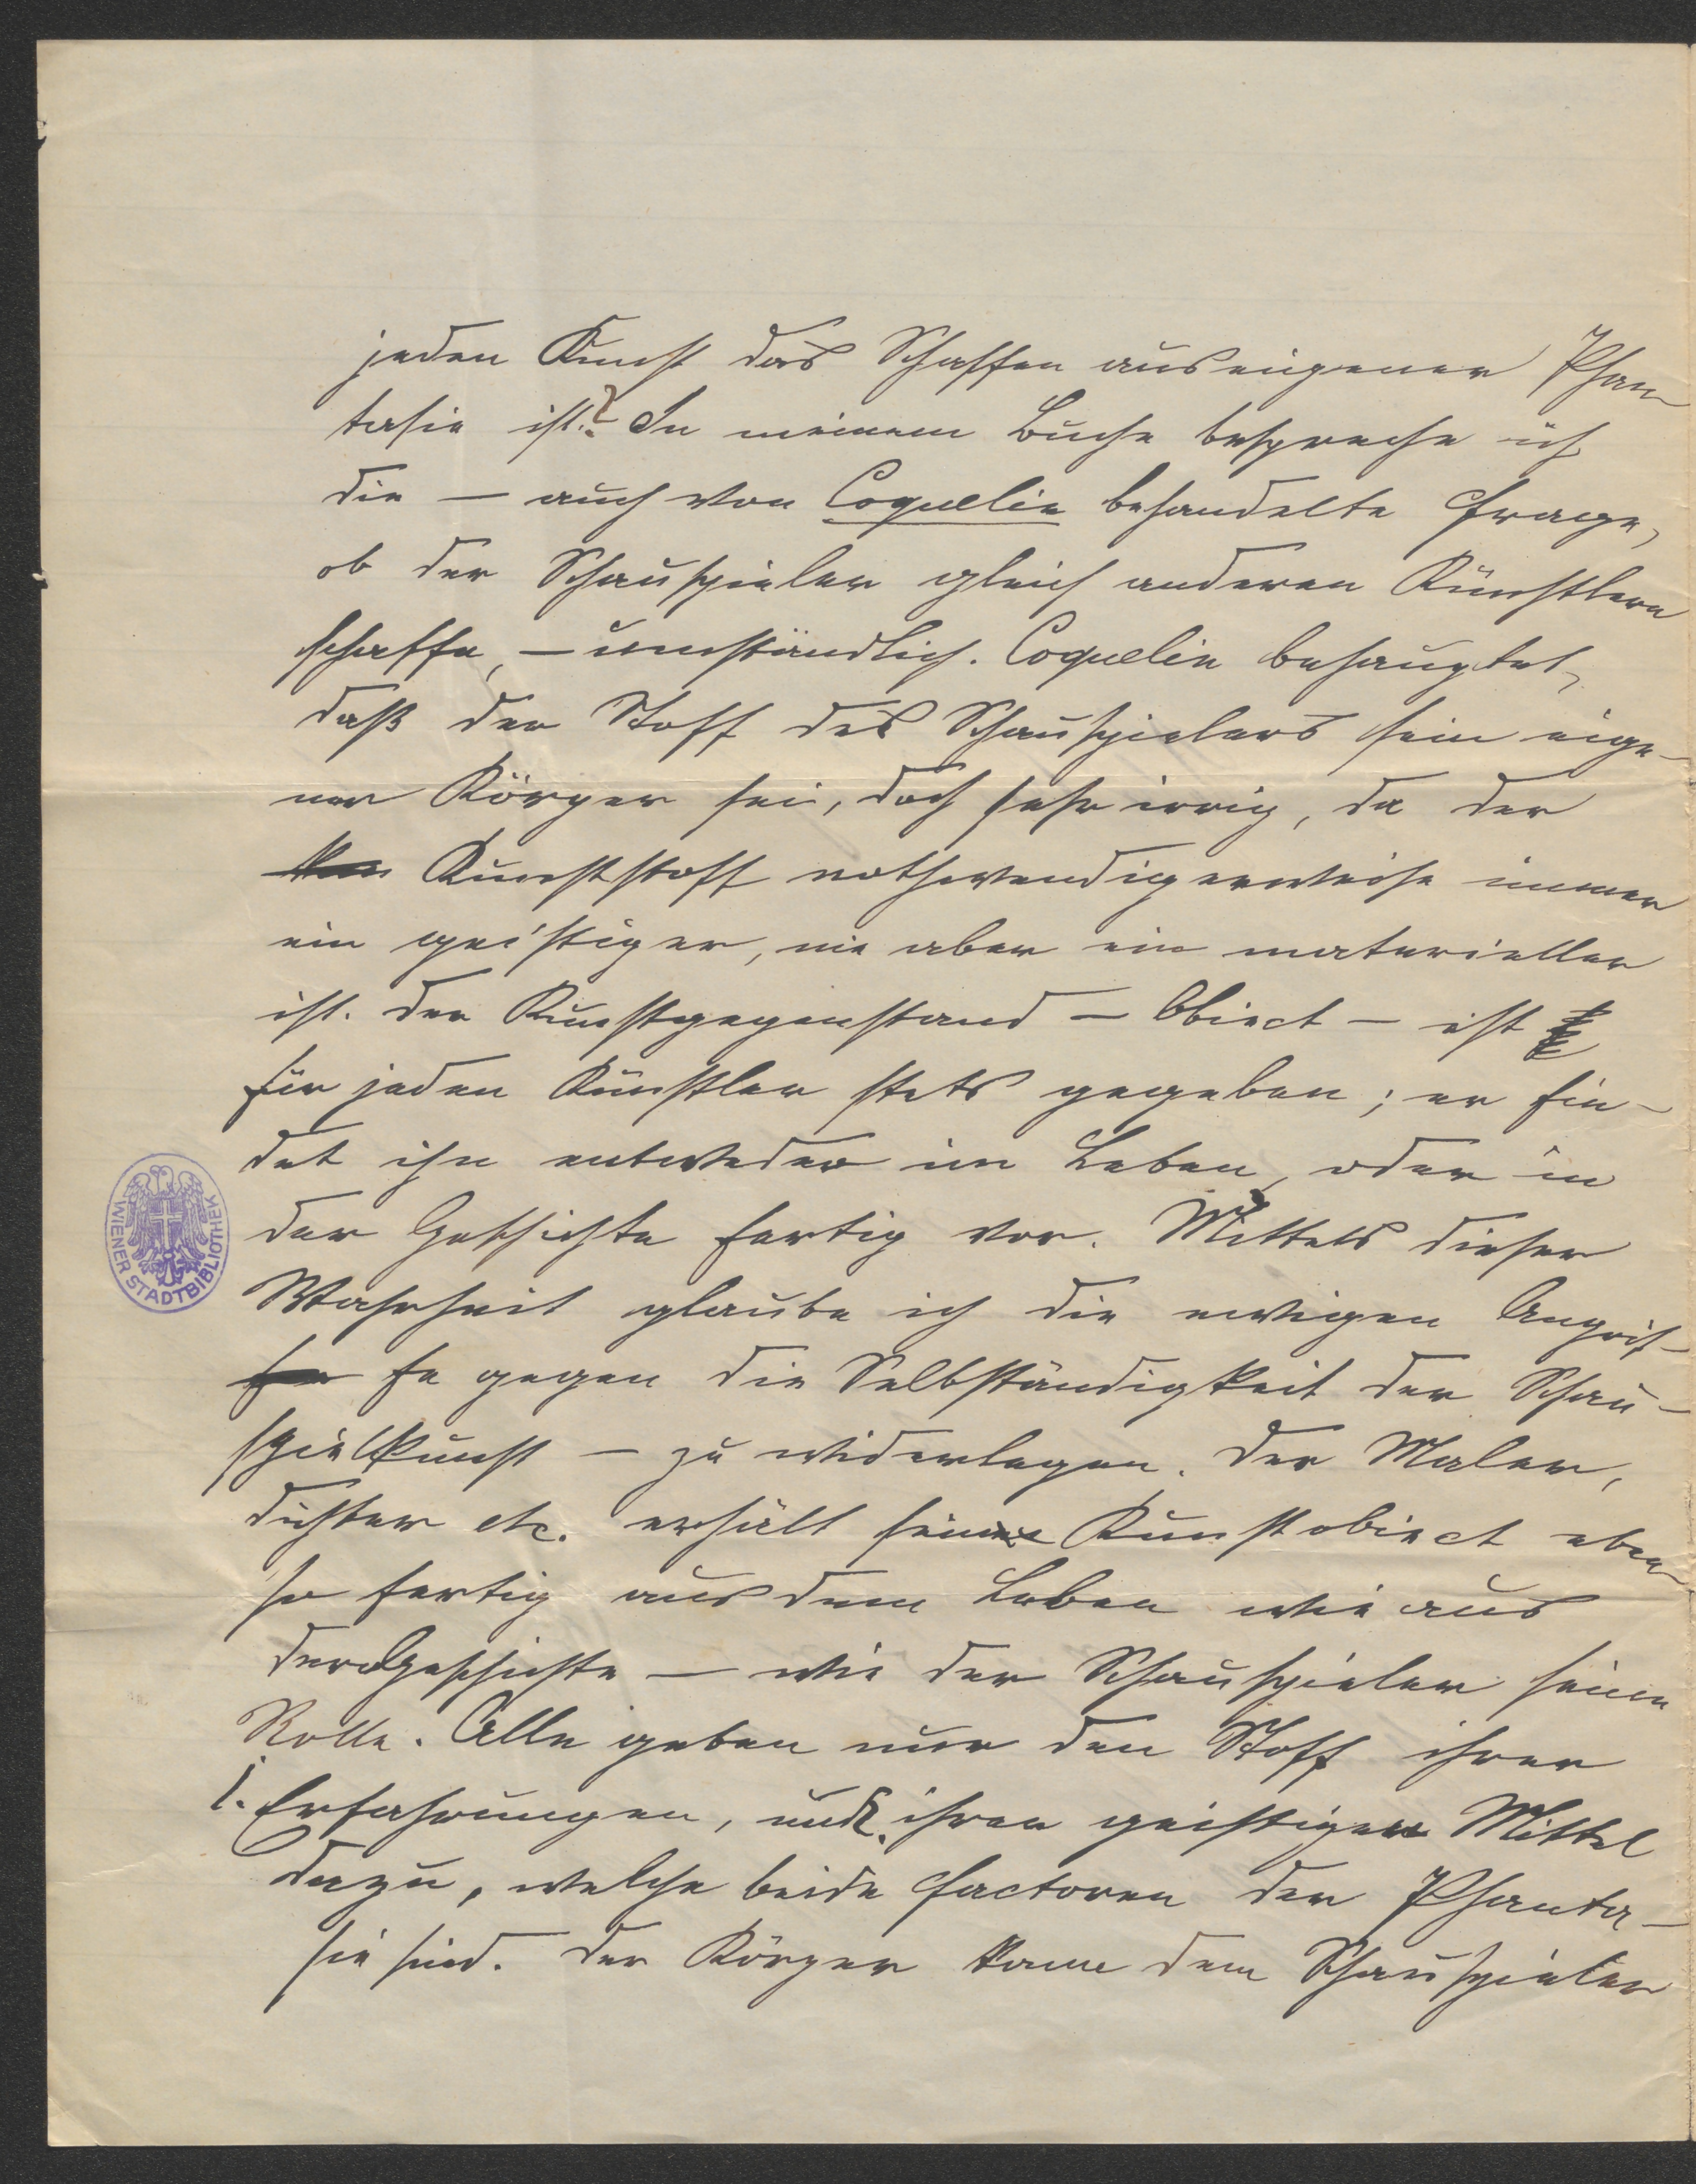 jeden Kunst das Schaffen aus eigener Phan
tasie ist? In meinem Buche bespreche ich
die — auch von Coquelin behandelte Frage,
ob der Schauspieler gleich anderen Künstlern
schaffe, — umständlich. Coquelin behauptet,
daß der Stoff des Schauspielers sein eige-
ner Körper sei, doch sehr irrig, da der
Kunststoff nothwendigerweise immer
ein geistiger, nie aber ein materieller
ist. Der Kunstgegenstand — Obiect — ist
für jeden Künstler stets gegeben; er fin-
det ihn entweder im Leben, oder in
der Geschichte fertig vor. Mittels dieser
Wahrheit glaube ich die ewigen Angrif-
fe gegen die Selbständigkeit der Schau-
spielkunst — zu widerlegen. Der Maler,
Dichter etc. erhält sein Kunstobiect eben
so fertig aus dem Leben wie aus
der Geschichte — wie der Schauspieler seine
Rolle. Alle geben nur den Stoff ihrer
1. Erfahrungen, und 2. ihren geistigen Mittel
dazu, welche beide Factoren der Phanta-
sie sind. Der Körper kann dem Schauspieler
WIENER STADTBIBLIOTHEK